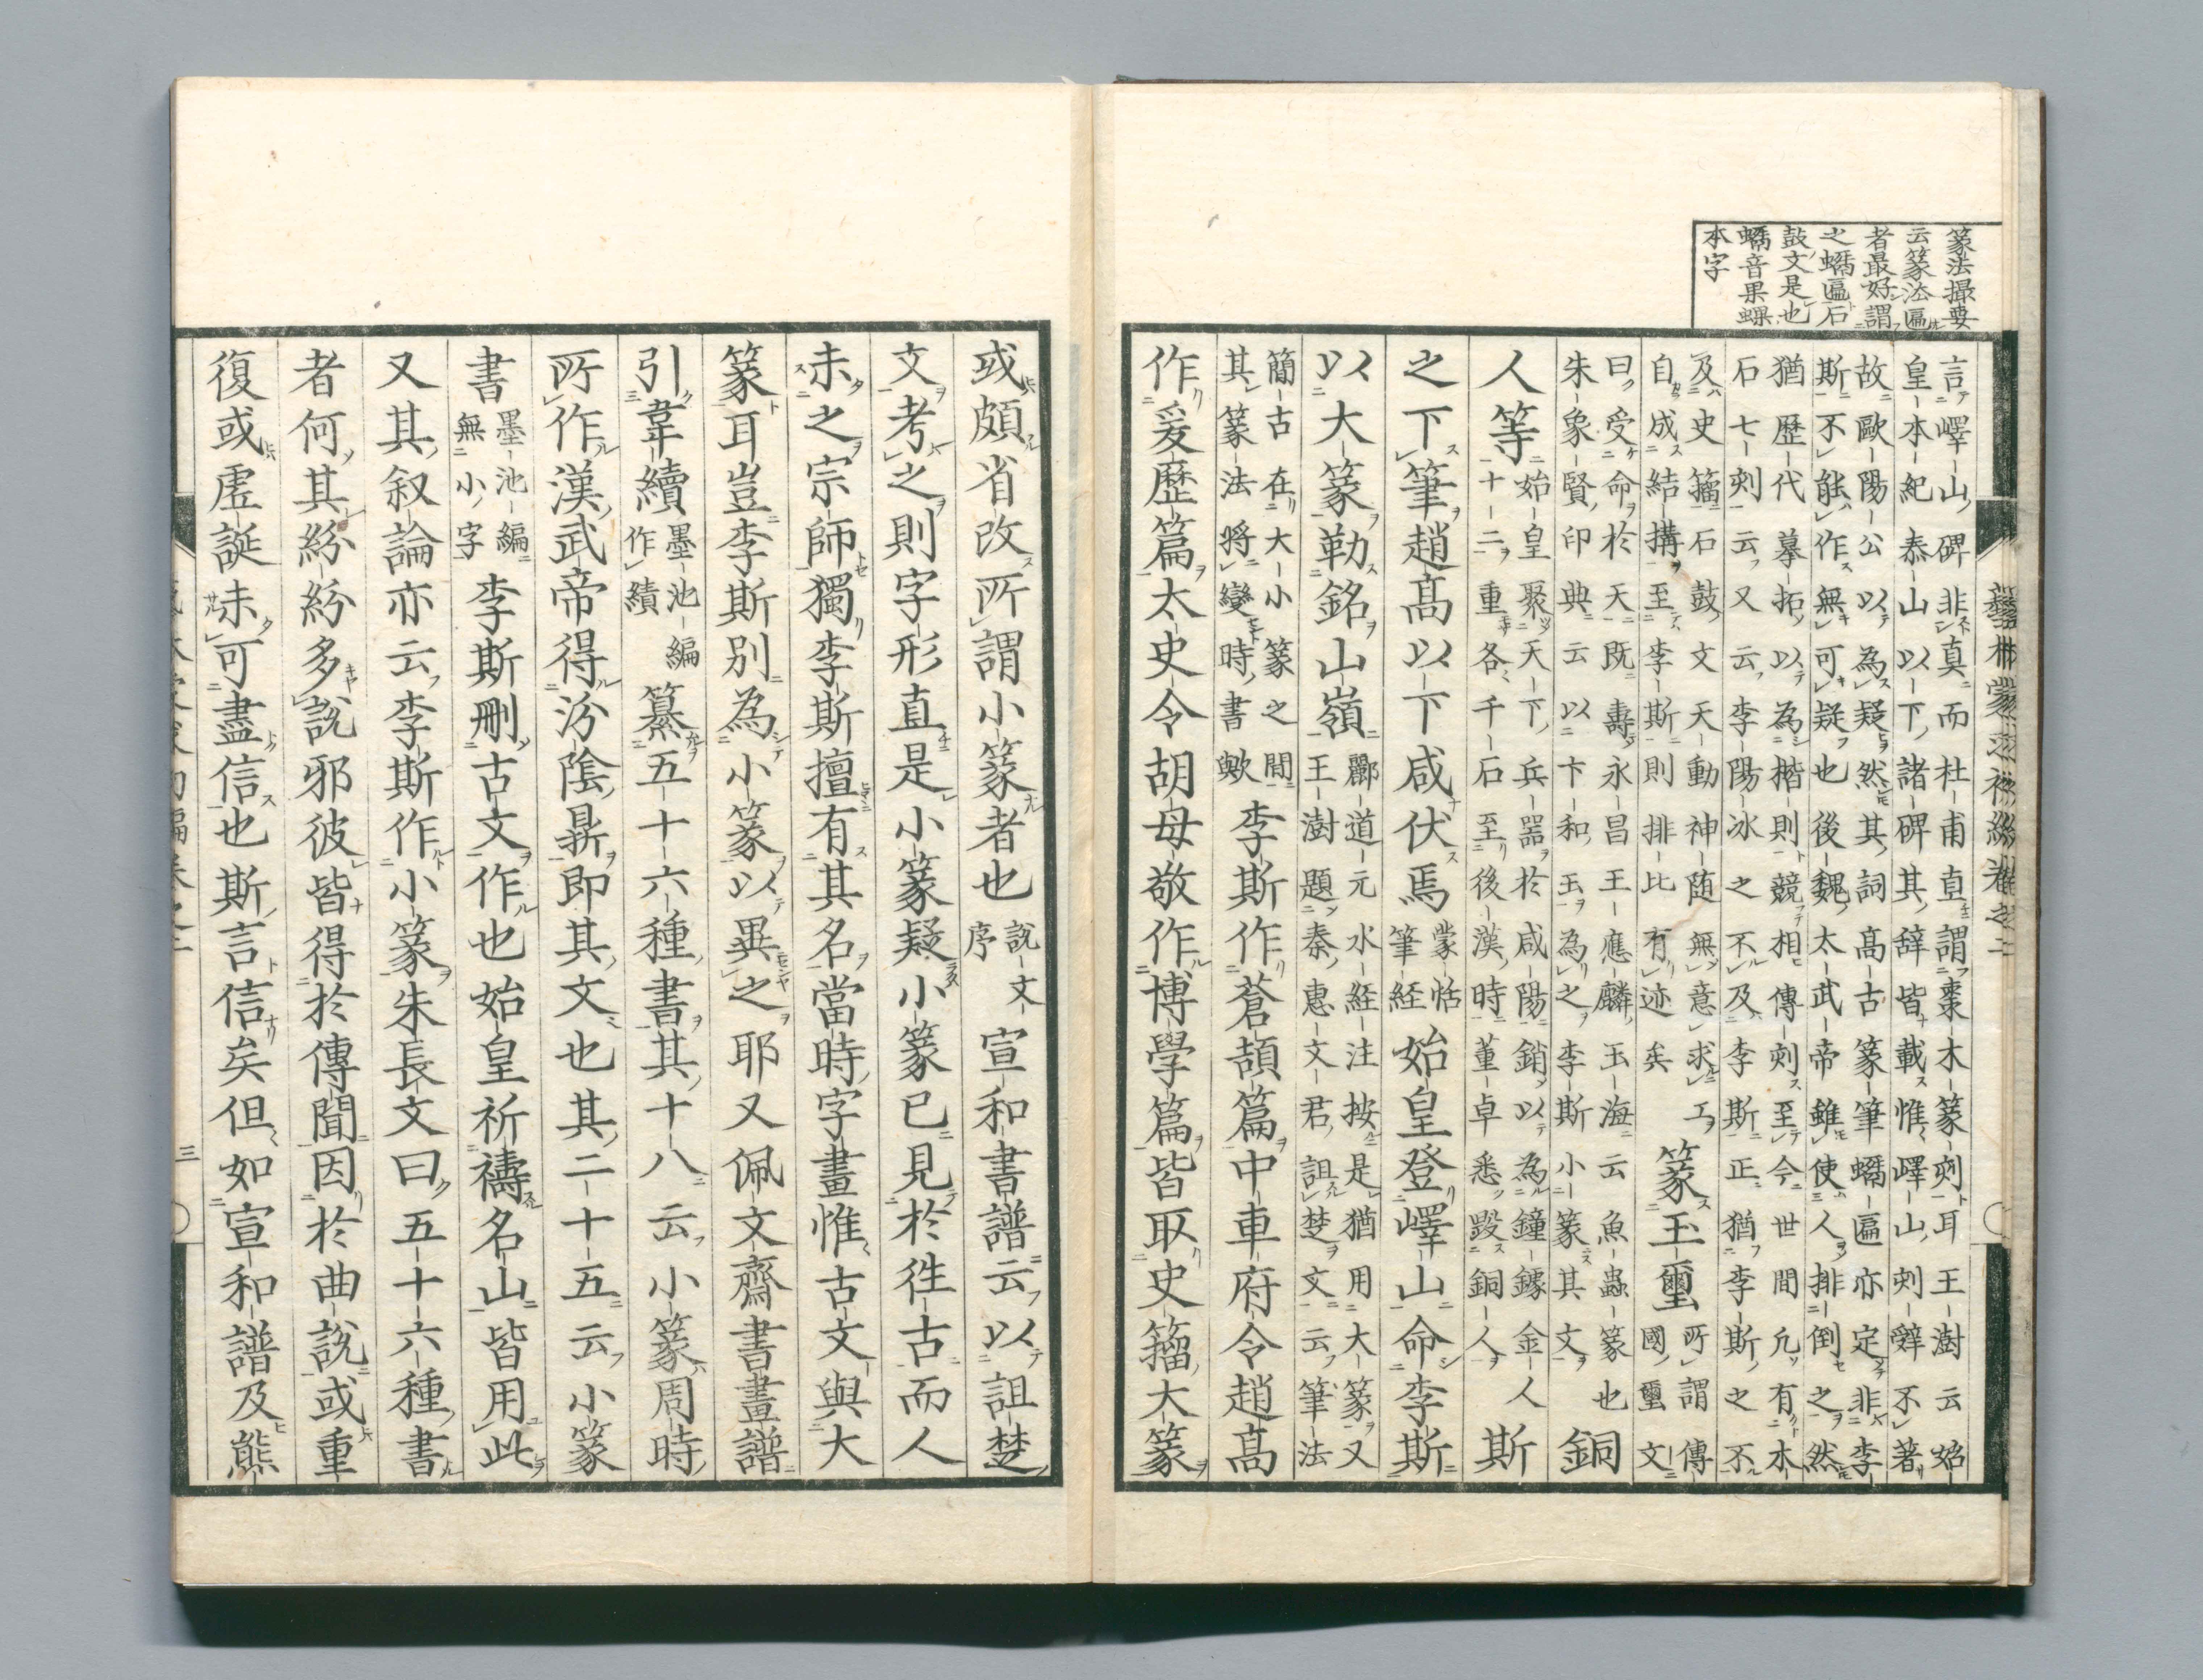 篆法撮要
云篆法匾
者最好謂
之蠕匾石
鼓文是也
蠕音果螺
本字
言嶧山碑非真而杜甫直謂棗木篆刻耳王澍云始
皇本紀泰山以下諸碑其辞皆載惟嶧山刻辤不著
故歐陽公以為疑然其詞高古篆筆蠕匾亦定非李
斯不能作無可疑也後魏太武帝雖使人排倒之然
猶歷代摹拓以為楷則競相傳刻至今世間凢有木
石七刻云又云李陽冰之不及李斯正猶李斯之不
及史籀石鼓文天動神随無意求工
自成結搆至李斯則排比有迹矣
篆玉璽
所謂傳
國璽文
曰受命於天既壽永昌王應麟玉海云魚蟲篆也
朱象賢印典云以卞和玉為之李斯小篆其文
銅
人等
始皇聚天下兵器於咸陽銷以為鐘鐻金人
十二重各千石至後漢時董卓悉毀銅人
斯
之下筆趙高以下咸伏焉
蒙恬
筆経
始皇登嶧山命李斯
以大篆勒銘山嶺
酈道元水経注按是猶用大篆又
王澍題秦惠文君詛楚文云筆法
簡古在大小篆之間
其篆法將變時書歟
李斯作蒼頡篇中車府令趙高
作爰歷篇太史令胡母敬作博學篇皆取史籀大篆
藝林蒙求初編卷之二
或頗省改所謂小篆者也
說文
序
宣和書譜云以詛楚
文考之則字形直是小篆疑小篆已見於徃古而人
未之宗師獨李斯擅有其名當時字畫惟古文與大
篆耳豈李斯別為小篆以異之耶又佩文齋書畫譜
引韋續
墨池編
作績
纂五十六種書其十八云小篆周時
所作漢武帝得汾陰鼎即其文也其二十五云小篆
書
墨池編
無小字
李斯刪古文作也始皇祈禱名山皆用此
又其叙論亦云李斯作小篆朱長文曰五十六種書
者何其紛紛多說邪彼皆得於傳聞因於曲說或重
復或虛誕未可盡信也斯言信矣但如宣和譜及熊
三